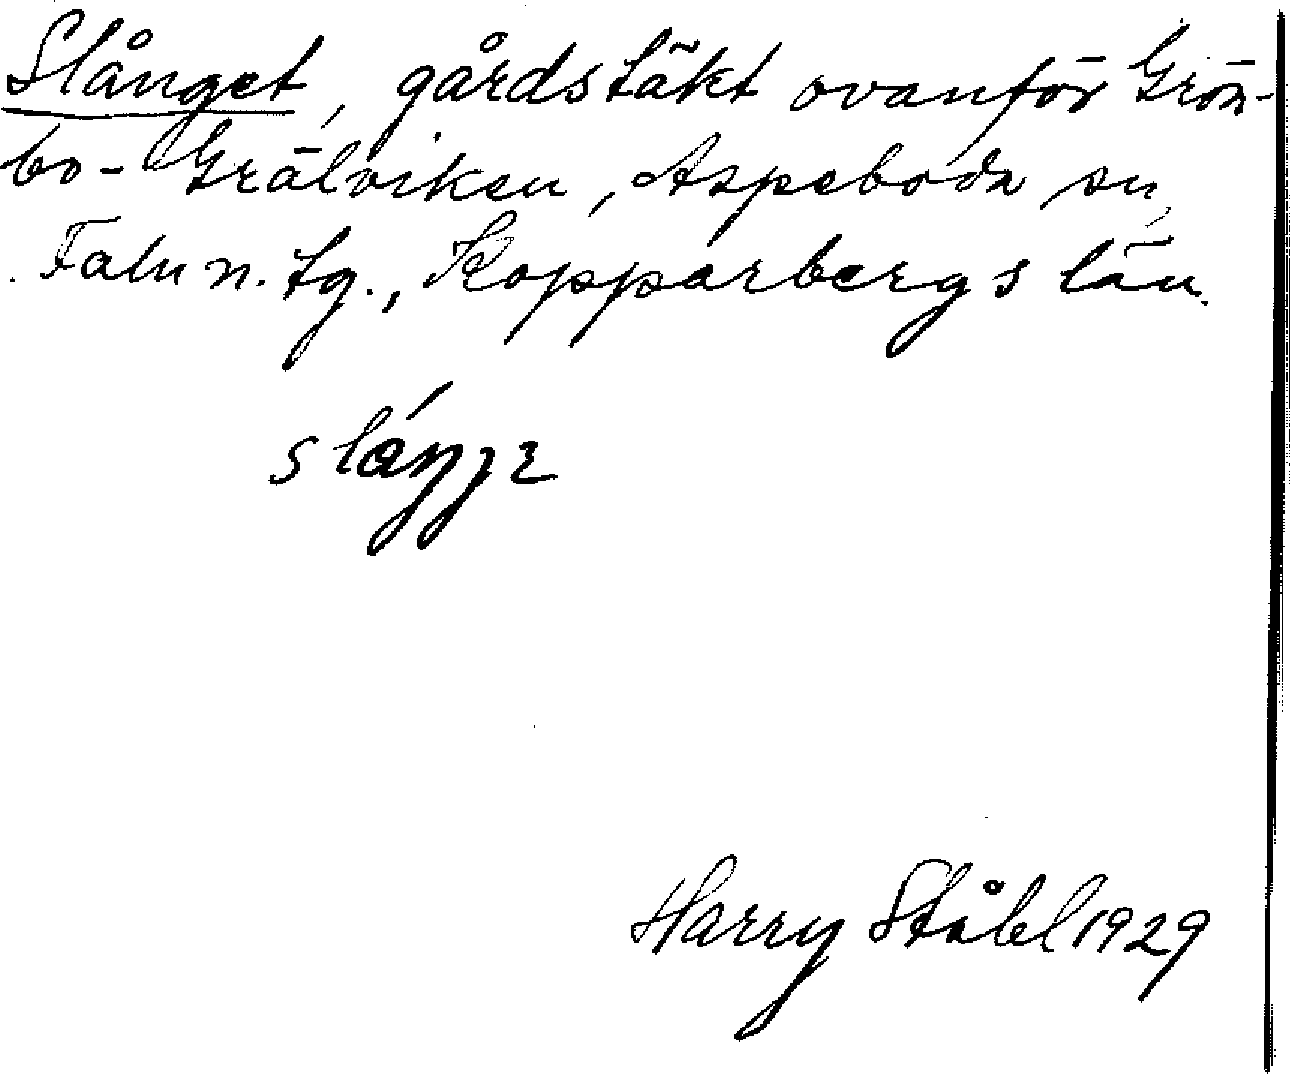 Slånget, gårdstäkt ovanför Grön-
bo-Grälviken, Aspeboda sn,
Falu n. tg., Kopparbergs län.
Harry Ståhl 1929